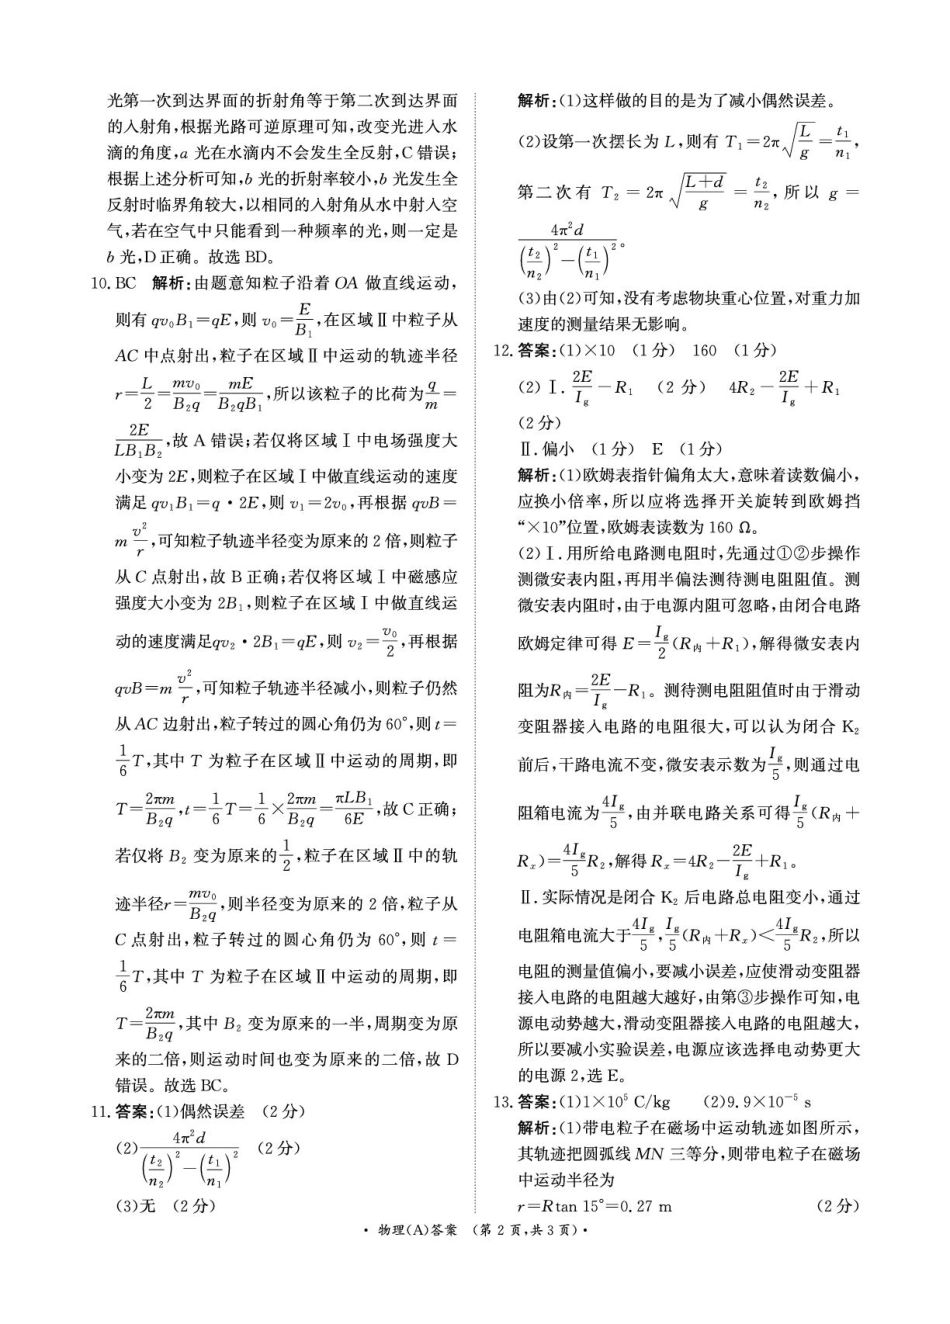 光第一次到达界面的折射角等于第二次到达界面
的入射角,根据光路可逆原理可知,改变光进入水
滴的角度,a 光在水滴内不会发生全反射,C 错误;
根据上述分析可知,b 光的折射率较小,b 光发生全
反射时临界角较大,以相同的入射角从水中射入空
气,若在空气中只能看到一种频率的光,则一定是
b 光,D 正确。故选 BD。
10. BC 解析:由题意知粒子沿着 OA 做直线运动,
则有 qv₀B₁=qE,则 v₀=E/B₁,在区域Ⅱ中粒子从
AC 中点射出,粒子在区域Ⅱ中运动的轨迹半径
r=L/2=mv₀/B₂q=mE/B₂qB₁,所以该粒子的比荷为 q/m=
2E/LB₁B₂,故 A 错误;若仅将区域Ⅰ中电场强度大
小变为 2E,则粒子在区域Ⅰ中做直线运动的速度
满足 qv₁B₁=q·2E,则 v₁=2v₀,再根据 qvB=
m v²/r,可知粒子轨迹半径变为原来的 2 倍,则粒子
从 C 点射出,故 B 正确;若仅将区域Ⅰ中磁感应
强度大小变为 2B₁,则粒子在区域Ⅰ中做直线运
动的速度满足qv₂·2B₁=qE,则 v₂=v₀/2,再根据
qvB=m v²/r,可知粒子轨迹半径减小,则粒子仍然
从 AC 边射出,粒子转过的圆心角仍为 60°,则 t=
1/6 T,其中 T 为粒子在区域Ⅱ中运动的周期,即
T=2πm/B₂q,t=1/6 T=1/6×2πm/B₂q=πLB₁/6E,故 C 正确;
若仅将 B₂ 变为原来的 1/2,粒子在区域Ⅱ中的轨
迹半径r=mv₀/B₂q,则半径变为原来的 2 倍,粒子从
C 点射出,粒子转过的圆心角仍为 60°,则 t=
1/6 T,其中 T 为粒子在区域Ⅱ中运动的周期,即
T=2πm/B₂q,其中 B₂ 变为原来的一半,周期变为原
来的二倍,则运动时间也变为原来的二倍,故 D
错误。故选 BC。
11. 答案:(1)偶然误差 (2 分)
(2) 4π²d/((t₂/n₂)²-(t₁/n₁)²) (2 分)
(3)无 (2 分)
解析:(1)这样做的目的是为了减小偶然误差。
(2)设第一次摆长为 L,则有 T₁=2π√(L/g)=t₁/n₁,
第二次有 T₂=2π√((L+d)/g)=t₂/n₂,所以 g=
4π²d/((t₂/n₂)²-(t₁/n₁)²)。
(3)由(2)可知,没有考虑物块重心位置,对重力加
速度的测量结果无影响。
12. 答案:(1)×10 (1 分) 160 (1 分)
(2)Ⅰ. 2E/I_g-R₁ (2 分) 4R₂-2E/I_g+R₁
(2 分)
Ⅱ. 偏小 (1 分) E (1 分)
解析:(1)欧姆表指针偏角太大,意味着读数偏小,
应换小倍率,所以应将选择开关旋转到欧姆挡
“×10”位置,欧姆表读数为 160 Ω。
(2)Ⅰ. 用所给电路测电阻时,先通过①②步操作
测微安表内阻,再用半偏法测待测电阻阻值。测
微安表内阻时,由于电源内阻可忽略,由闭合电路
欧姆定律可得 E=I_g/2(R内+R₁),解得微安表内
阻为R内=2E/I_g-R₁。测待测电阻阻值时由于滑动
变阻器接入电路的电阻很大,可以认为闭合 K₂
前后,干路电流不变,微安表示数为I_g/5,则通过电
阻箱电流为4I_g/5,由并联电路关系可得I_g/5(R内+
Rₓ)=4I_g/5 R₂,解得 Rₓ=4R₂-2E/I_g+R₁。
Ⅱ. 实际情况是闭合 K₂ 后电路总电阻变小,通过
电阻箱电流大于4I_g/5,I_g/5(R内+Rₓ)<4I_g/5 R₂,所以
电阻的测量值偏小,要减小误差,应使滑动变阻器
接入电路的电阻越大越好,由第③步操作可知,电
源电动势越大,滑动变阻器接入电路的电阻越大,
所以要减小实验误差,电源应该选择电动势更大
的电源 2,选 E。
13. 答案:(1)1×10⁵ C/kg (2)9.9×10⁻⁵ s
解析:(1)带电粒子在磁场中运动轨迹如图所示,
其轨迹把圆弧线 MN 三等分,则带电粒子在磁场
中运动半径为
r=Rtan 15°=0.27 m (2 分)
· 物理(A)答案 (第 2 页,共 3 页) ·